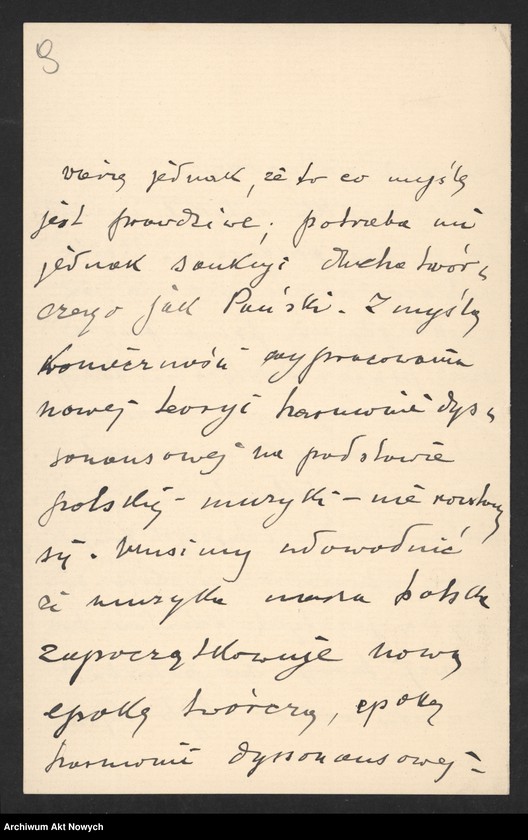 3
wierzę jednak, że to co myślę
jest prawdziwe; potrzeba mi
jednak sankcyi ducha twór-
czego jak Pański. Z myślą
konieczności wypracowania
nowej teoryi harmonii dys-
sonansowej na podstawie
polskiej muzyki – nie rozstaję
się. Musimy udowodnić
że muzyka nasza polska
zapoczątkowuje nową
epokę twórczą, epokę
harmonii dyssonansowej –
Archiwum Akt Nowych